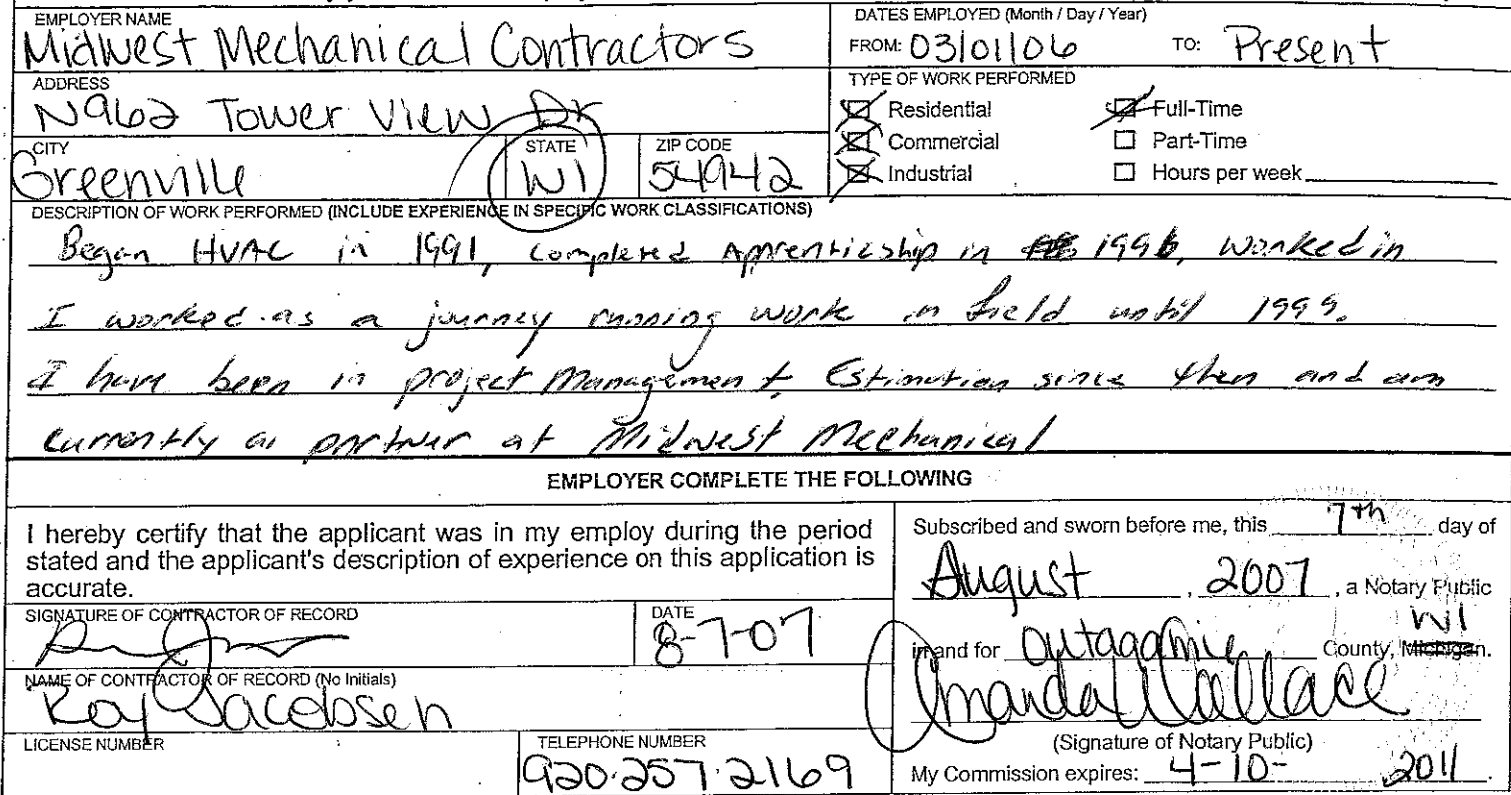 EMPLOYER NAME
Midwest Mechanical Contractors
DATES EMPLOYED (Month / Day / Year)
FROM: 03/01/06 TO: Present
ADDRESS
N962 Tower View Dr
TYPE OF WORK PERFORMED
Residential Full-Time
Commercial Part-Time
Industrial Hours per week
CITY
Greenville
STATE
WI
ZIP CODE
54942
DESCRIPTION OF WORK PERFORMED (INCLUDE EXPERIENCE IN SPECIFIC WORK CLASSIFICATIONS)
Began HVAC in 1991, completed Apprenticship in 1996, worked in
I worked as a journey running work in field until 1999.
I have been in project Management, Estimation since then and am
currently a partner at Midwest Mechanical
EMPLOYER COMPLETE THE FOLLOWING
I hereby certify that the applicant was in my employ during the period
stated and the applicant's description of experience on this application is
accurate.
SIGNATURE OF CONTRACTOR OF RECORD
DATE
8-7-07
NAME OF CONTRACTOR OF RECORD (No Initials)
Roy Jacobsen
LICENSE NUMBER
TELEPHONE NUMBER
920.257.2169
Subscribed and sworn before me, this 7th day of
August, 2007, a Notary Public
WI
in and for Outagamie County, Michigan.
Amanda Wallace
(Signature of Notary Public)
My Commission expires: 4-10-, 2011.